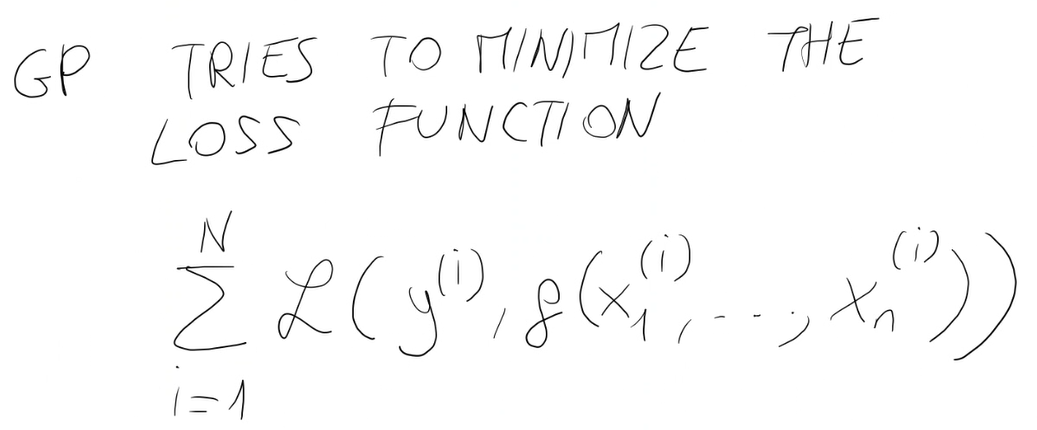 GP TRIES TO MINIMIZE THE
LOSS FUNCTION
\sum_{i=1}^{N} \mathcal{L}(y^{(i)}, f(x_1^{(i)}, ..., x_n^{(i)}))